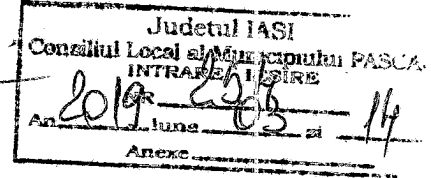 Judetul IASI
Consiliul Local al Municipiului PASCA
INTRARE IESIRE
NR
An 2019 luna 03 zi 14
Anexe